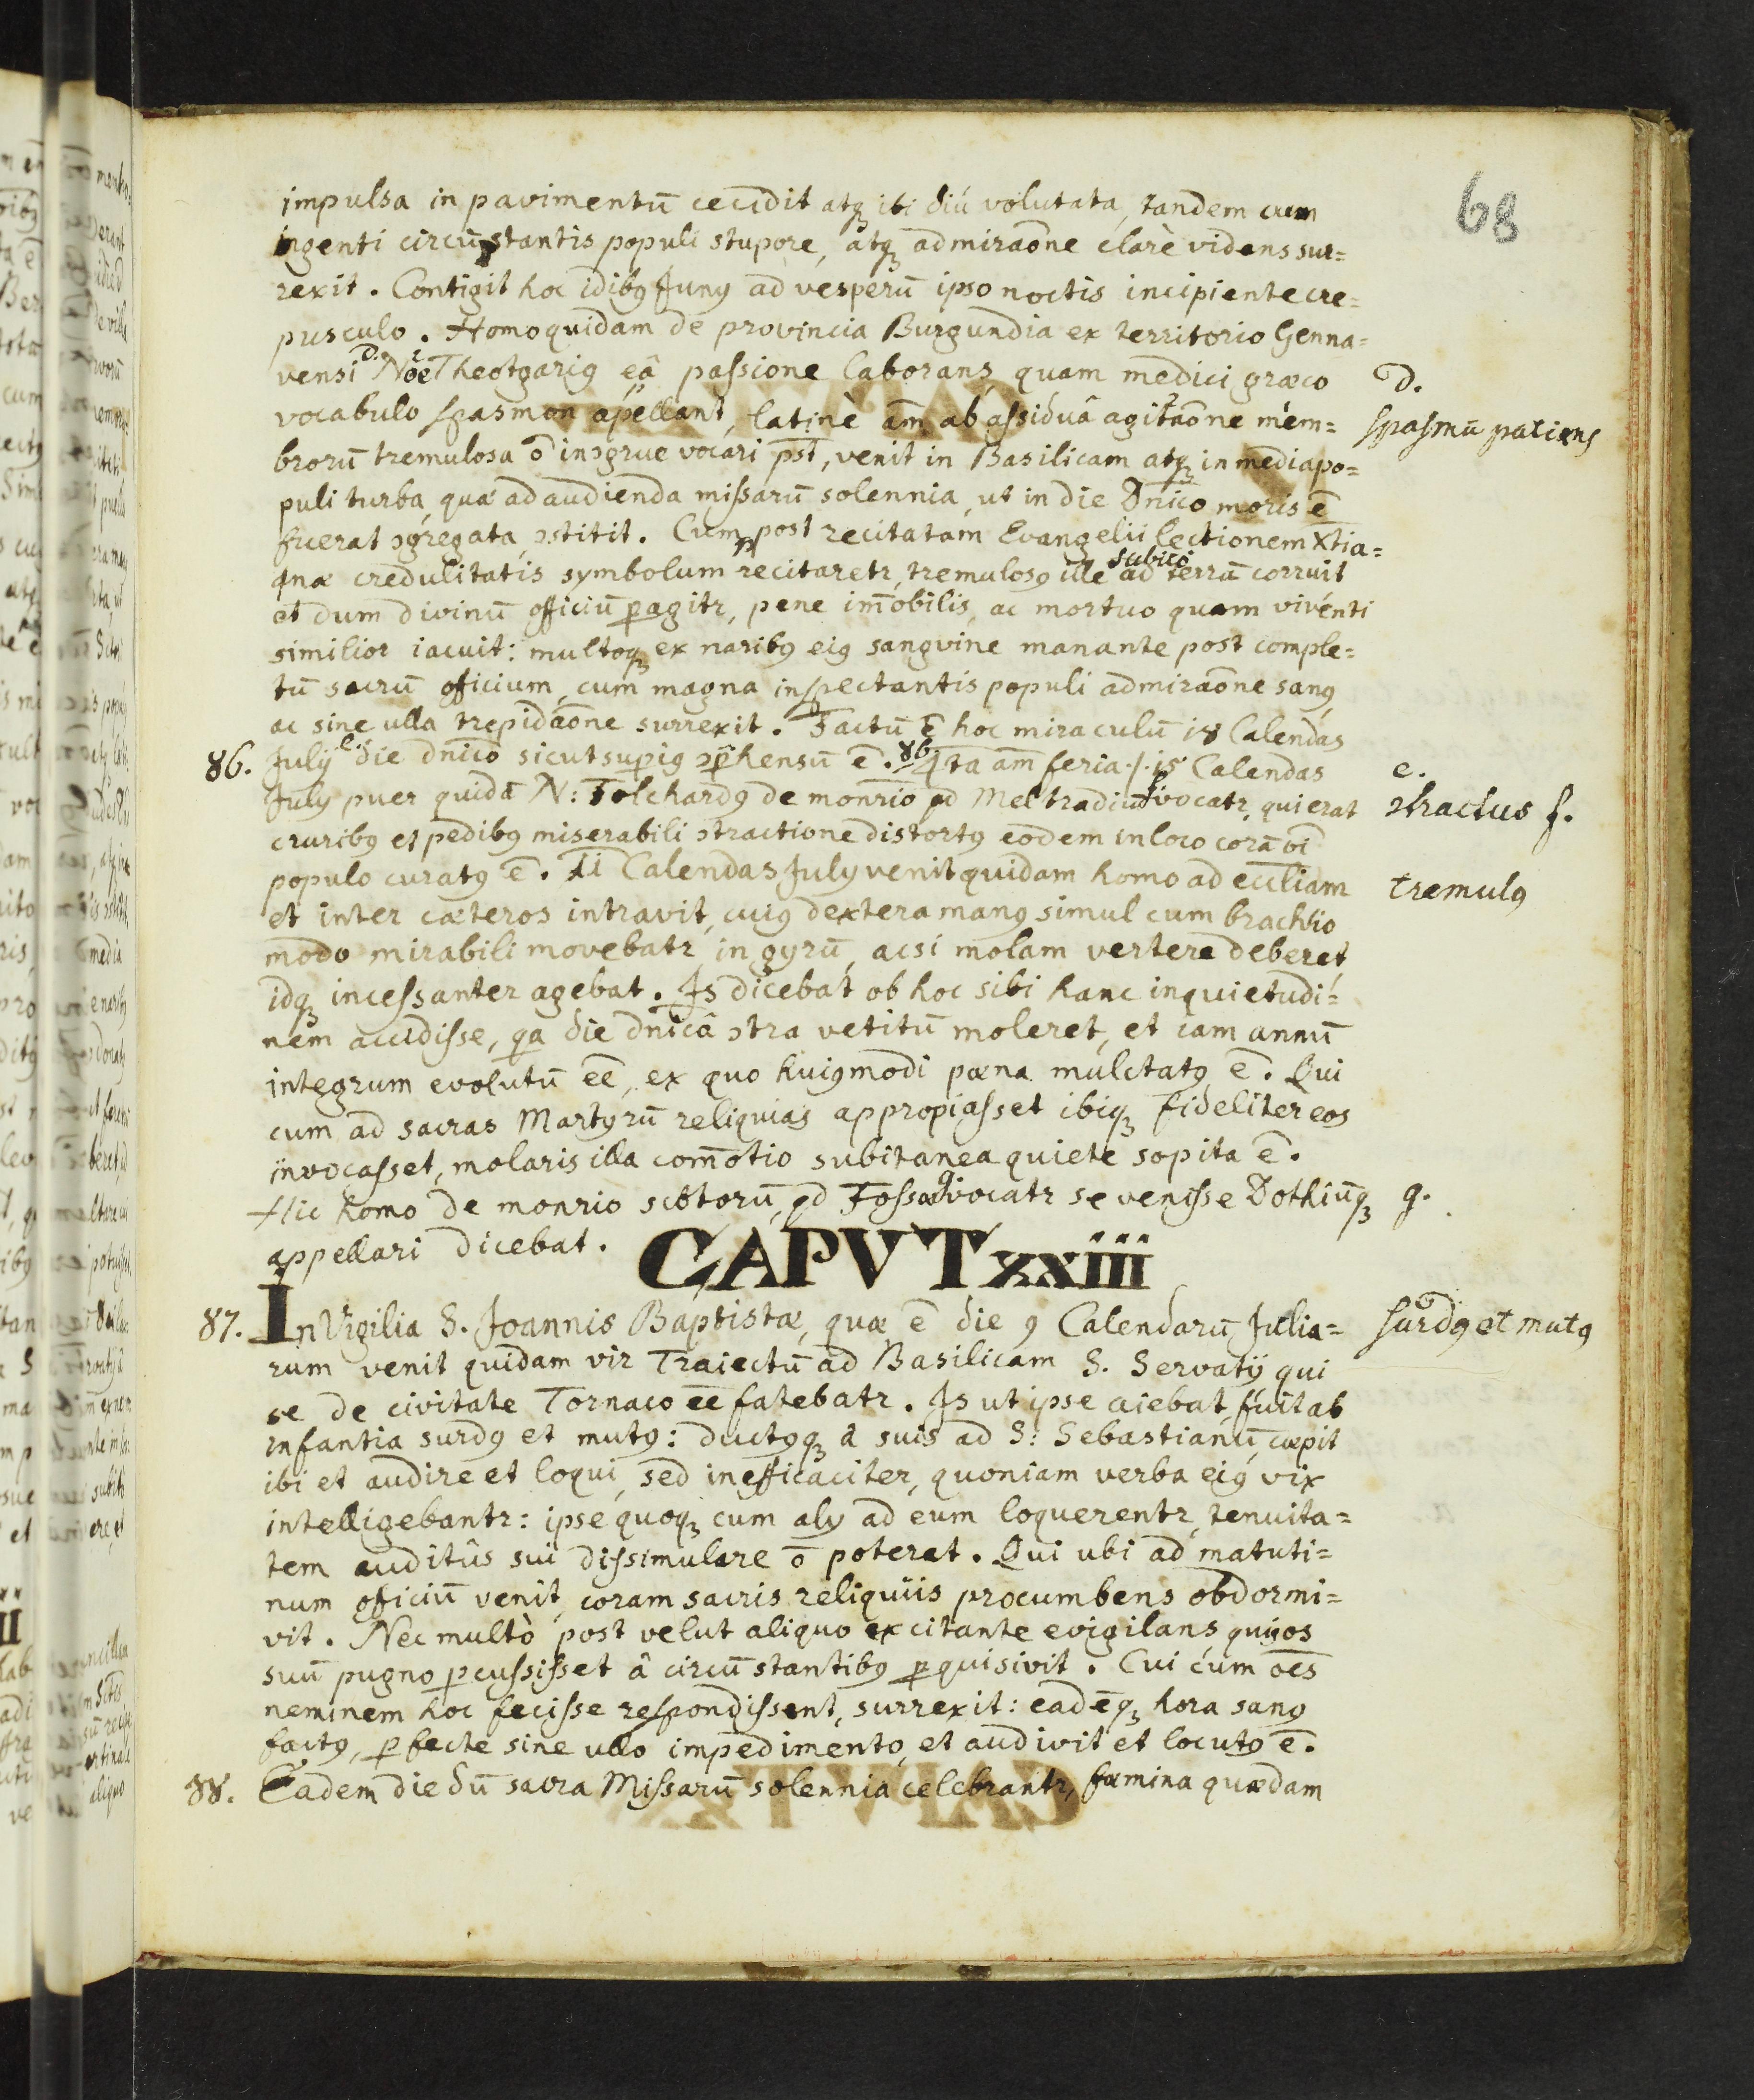 68
impulsa in pavimentū cecidit atqꝫ ibi diú volutata, tandem cum
ingenti circūstantis populi stupore, atqꝫ admiraōne clarè videns sur=
rexit. Contigit hoc idibꝯ Junÿ ad vesperū ipso noctis incipiente cre=
pusculo. Homo quidam de provincia Burgundia ex territorio Genna=
vensi d. Nōe Theotgariꝯ eâ passione laborans, quam medici græco
d.
vocabulo spasmon apellant, latinè am̄ ab assiduâ agitaōne mem=
spasmū patiens
brorū tremulosa ō inↄgrue vocari pst̄, venit in Basilicam atqꝫ in media po=
puli turba, quæ ad audienda missarū solennia, ut in die Dn̄ico moris ē
fuerat ↄgregata, ↄstitit. Cumqꝫ post recitatam Evangelii lectionem Xtia=
næ credulitatis symbolum recitaretr, tremulosꝯ ille subitò ad terrā corruit
et dum divinū officiū ꝑagitr, pene im̄obilis, ac mortuo quam viventi
similior iacuit: multoqꝫ ex naribꝯ eiꝯ sangvine manante post comple=
tū sacrū officium, cum magna inspectantis populi admiraōne sanꝯ
ac sine ulla trepidaōne surrexit. Factū ē hoc miraculū 18 Calendas
86. Julÿ e. die dn̄ico sicut supriꝯ ↄp̄hensū ē. 86. 4ta am̄ feria /. 15 Calendas
e.
Julÿ puer quidā N: Folchardꝯ de monrio qd Meltradiū f vocatr, qui erat
ↄtractus f.
cruribꝯ et pedibꝯ miserabili ↄtractione distortꝯ eodem in loco corā oi
populo curatꝯ ē. 11 Calendas Julÿ venit quidam homo ad eccliam
tremulꝯ
et inter cæteros intravit, cuiꝯ dextera manꝯ simul cum brachio
modo mirabili movebatr in gyrū, acsi molam vertere deberet,
idqꝫ incessanter agebat. Is dicebat ob hoc sibi hanc inquietudi=
nem accidisse, qa die dn̄icâ ↄtra vetitū moleret, et iam annū
integrum evolutū ēē, ex quo huiꝯmodi pœna mulctatꝯ ē. Qui
cum ad sacras Martyrū reliquias appropiasset ibiqꝫ fideliter eos
invocasset, molaris illa com̄otio subitanea quiete sopita ē.
Hic homo de monrio scōtorū, qd Fossa g vocatr se venisse Dothiūqꝫ
g.
appellari dicebat.
CAPVT xxiii
87. In Vigilia S. Joannis Baptistæ, quæ ē die 9 Calendarū Julia=
surdꝯ et mutꝯ
rum venit quidam vir Traiectū ad Basilicam S. Servatÿ qui
se de civitate Tornaco ēē fatebatr. Is ut ipse aiebat, fuit ab
infantia surdꝯ et mutꝯ: ductꝯqꝫ â suis ad S: Sebastianū, cæpit
ibi et audire et loqui, sed inefficàciter, quoniam verba eiꝯ vix
intelligebantr: ipse quoqꝫ cum alÿ ad eum loquerentr, tenuita=
tem auditûs sui dissimulare ō poterat. Qui ubi ad matuti=
num oficiū venit, coram sacris reliquiis procumbens obdormi=
vit. Nec multò post velut aliquo excitante evigilans, quis os
suū pugno ꝑcussisset â circūstantibꝯ ꝑquisivit. Cui cum oēs
neminem hoc fecisse respondissent, surrexit: eadēqꝫ hora sanꝯ
factꝯ, ꝑfecte sine ullo impedimento, et audivit et locutꝯ ē.
88. Eadem die dū sacra Missarū solennia celebrantr, fæmina quædam